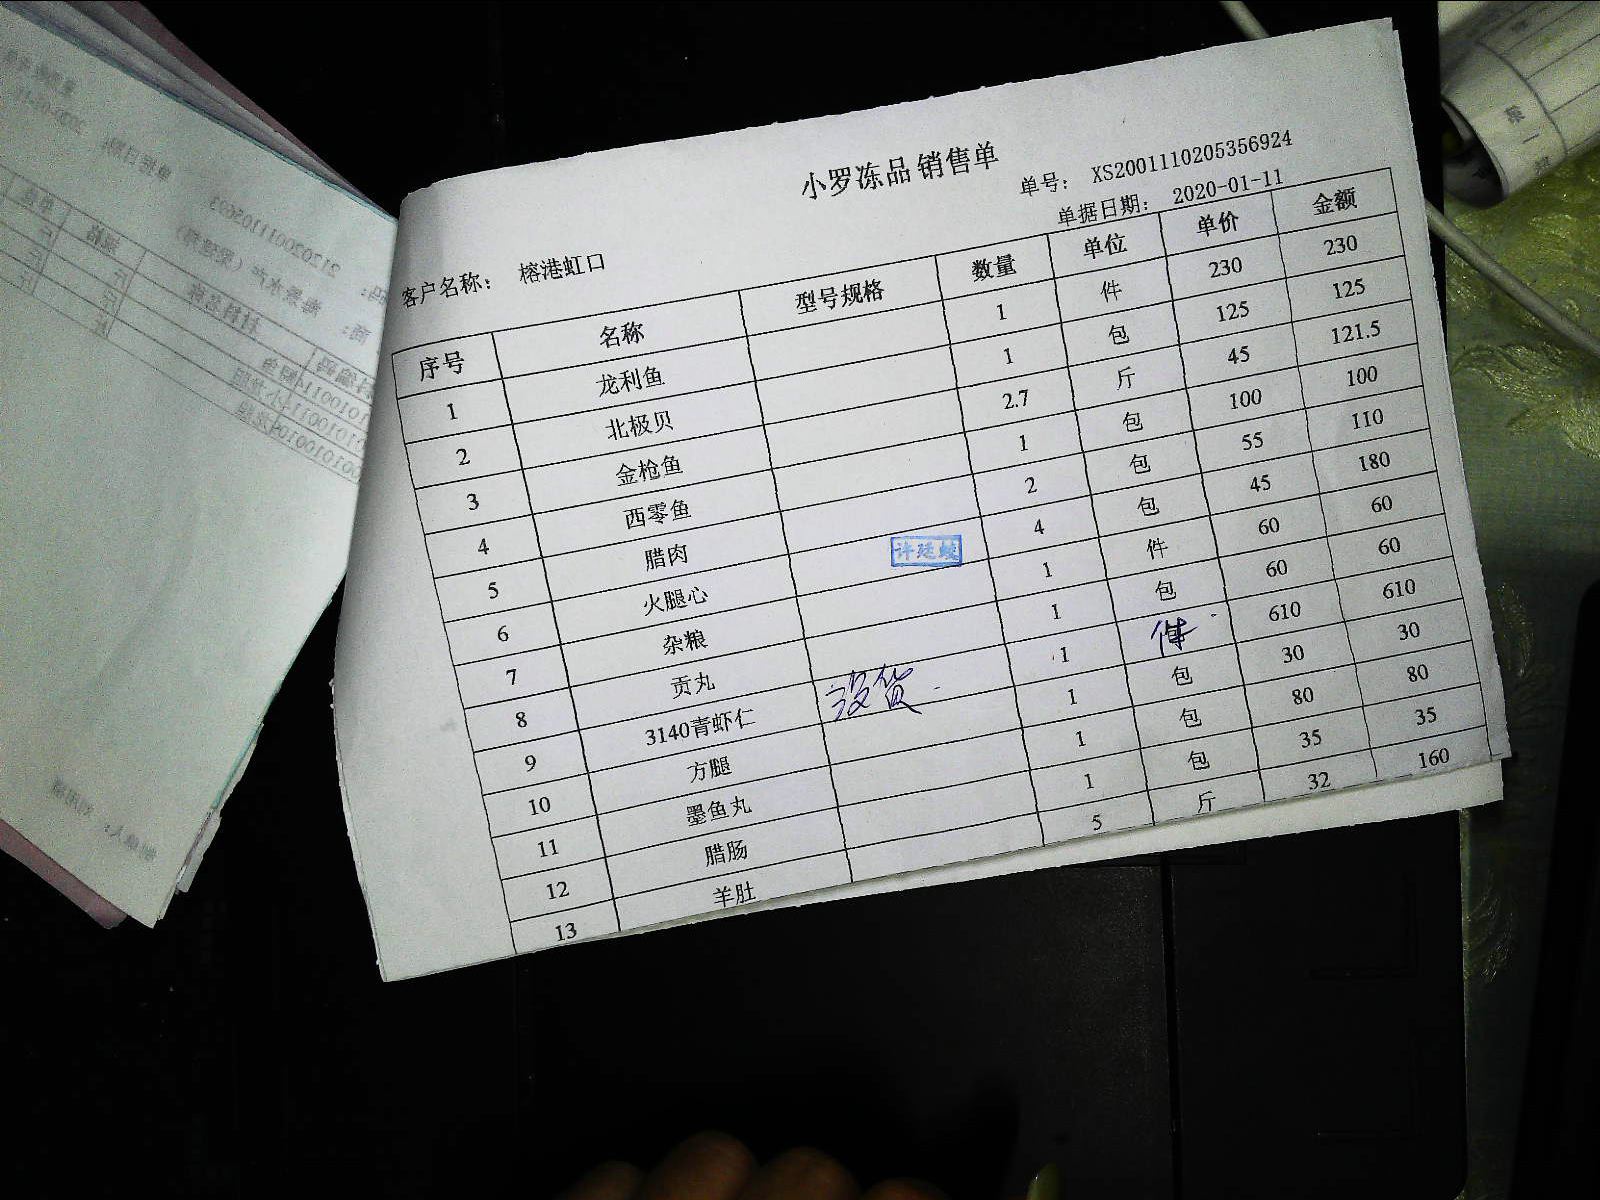 小罗冻品 销售单
单号： XS2001110205356924
客户名称： 榕港虹口 单据日期： 2020-01-11
序号 名称 型号规格 数量 单位 单价 金额
1 龙利鱼 1 件 230 230
2 北极贝 1 包 125 125
3 金枪鱼 2.7 斤 45 121.5
4 西零鱼 1 包 100 100
5 腊肉 2 包 55 110
6 火腿心 4 包 45 180
7 杂粮 1 件 60 60
8 贡丸 1 包 60 60
9 3140青虾仁 没货 1 件 610 610
10 方腿 1 包 30 30
11 墨鱼丸 1 包 80 80
12 腊肠 1 包 35 35
13 羊肚 5 斤 32 160